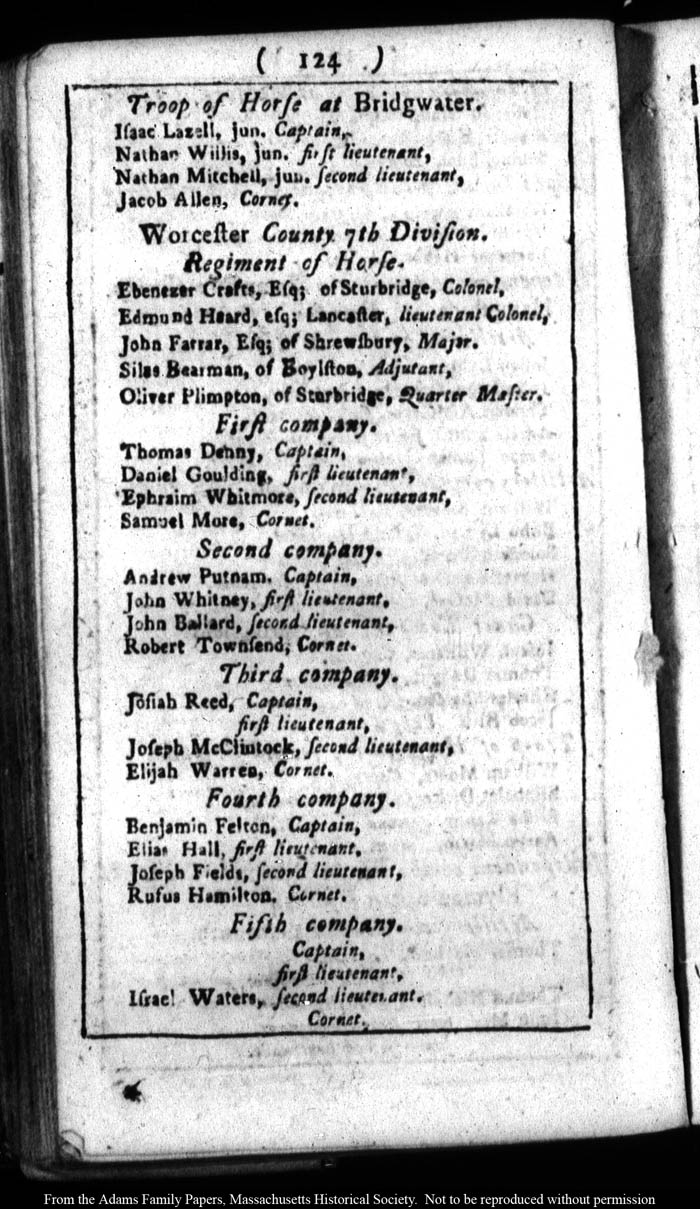 ( 124 )
Troop of Horſe at Bridgwater.
Iſaac Lazell, jun. Captain,
Nathan Willis, jun. firſt lieutenant,
Nathan Mitchell, jun. ſecond lieutenant,
Jacob Allen, Cornet.
Worceſter County 7th Diviſion.
Regiment of Horſe.
Ebenezer Crafts, Eſq; of Sturbridge, Colonel,
Edmund Heard, eſq; Lancaſter, lieutenant Colonel,
John Farrar, Eſq; of Shrewſbury, Major.
Silas Bearman, of Boylſton, Adjutant,
Oliver Plimpton, of Sturbridge, Quarter Maſter.
Firſt company.
Thomas Denny, Captain,
Daniel Goulding, firſt lieutenant,
Ephraim Whitmore, ſecond lieutenant,
Samuel More, Cornet.
Second company.
Andrew Putnam. Captain,
John Whitney, firſt lieutenant,
John Ballard, ſecond lieutenant,
Robert Townſend, Cornet.
Third company.
Joſiah Reed, Captain,
firſt lieutenant,
Joſeph McClintock, ſecond lieutenant,
Elijah Warren, Cornet.
Fourth company.
Benjamin Felton, Captain,
Elias Hall, firſt lieutenant,
Joſeph Fields, ſecond lieutenant,
Rufus Hamilton. Cornet.
Fifth company.
Captain,
firſt lieutenant,
Iſrael Waters, ſecond lieutenant.
Cornet.
From the Adams Family Papers, Massachusetts Historical Society. Not to be reproduced without permission